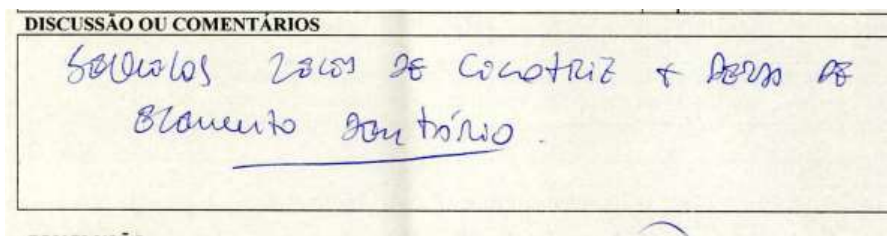 DISCUSSÃO OU COMENTÁRIOS
SEQUELAS DE CICATRIZ + PERDA DE
ELEMENTO DENTÁRIO.